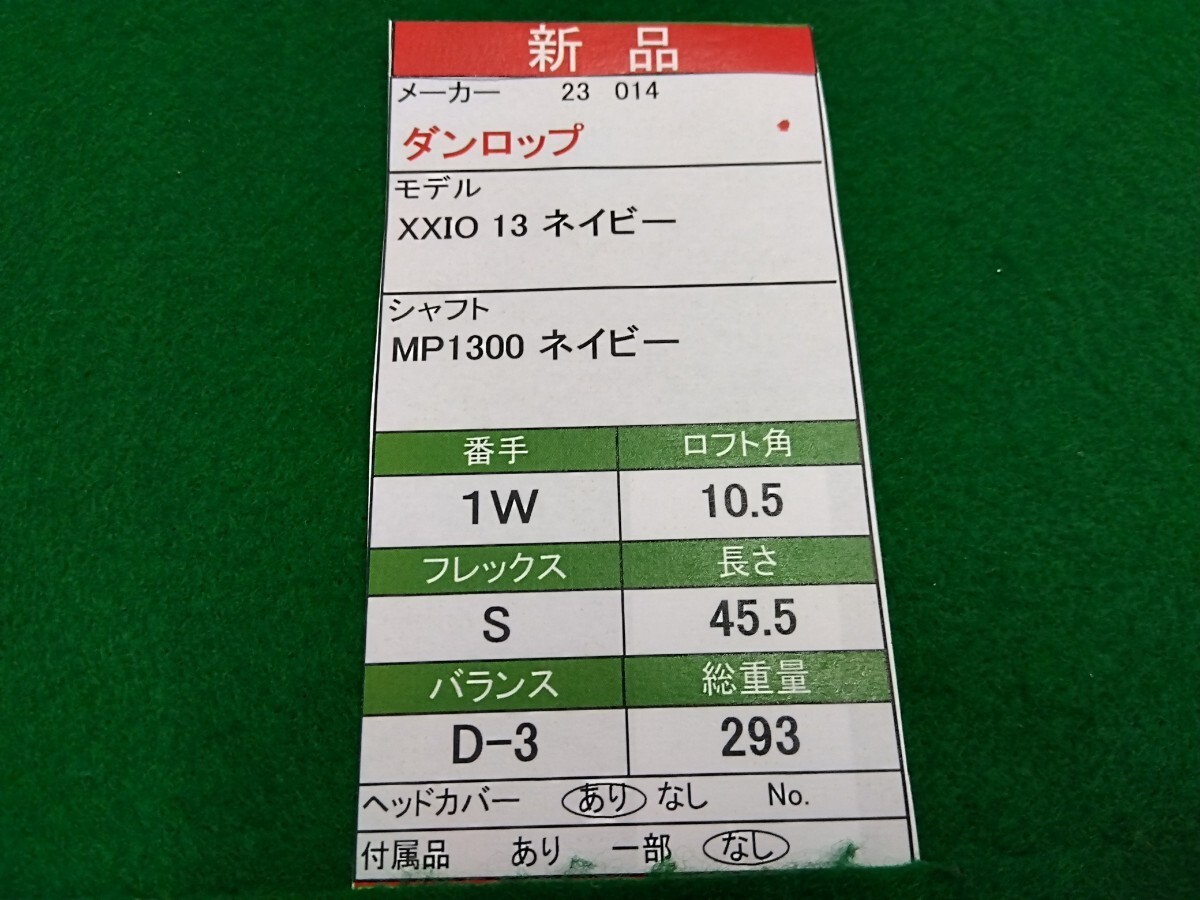 新 品
メーカー 23 014
ダンロップ
モデル
XXIO 13 ネイビー
シャフト
MP1300 ネイビー
番手 ロフト角
1W 10.5
フレックス 長さ
S 45.5
バランス 総重量
D-3 293
ヘッドカバー あり なし No.
付属品 あり 一部 なし